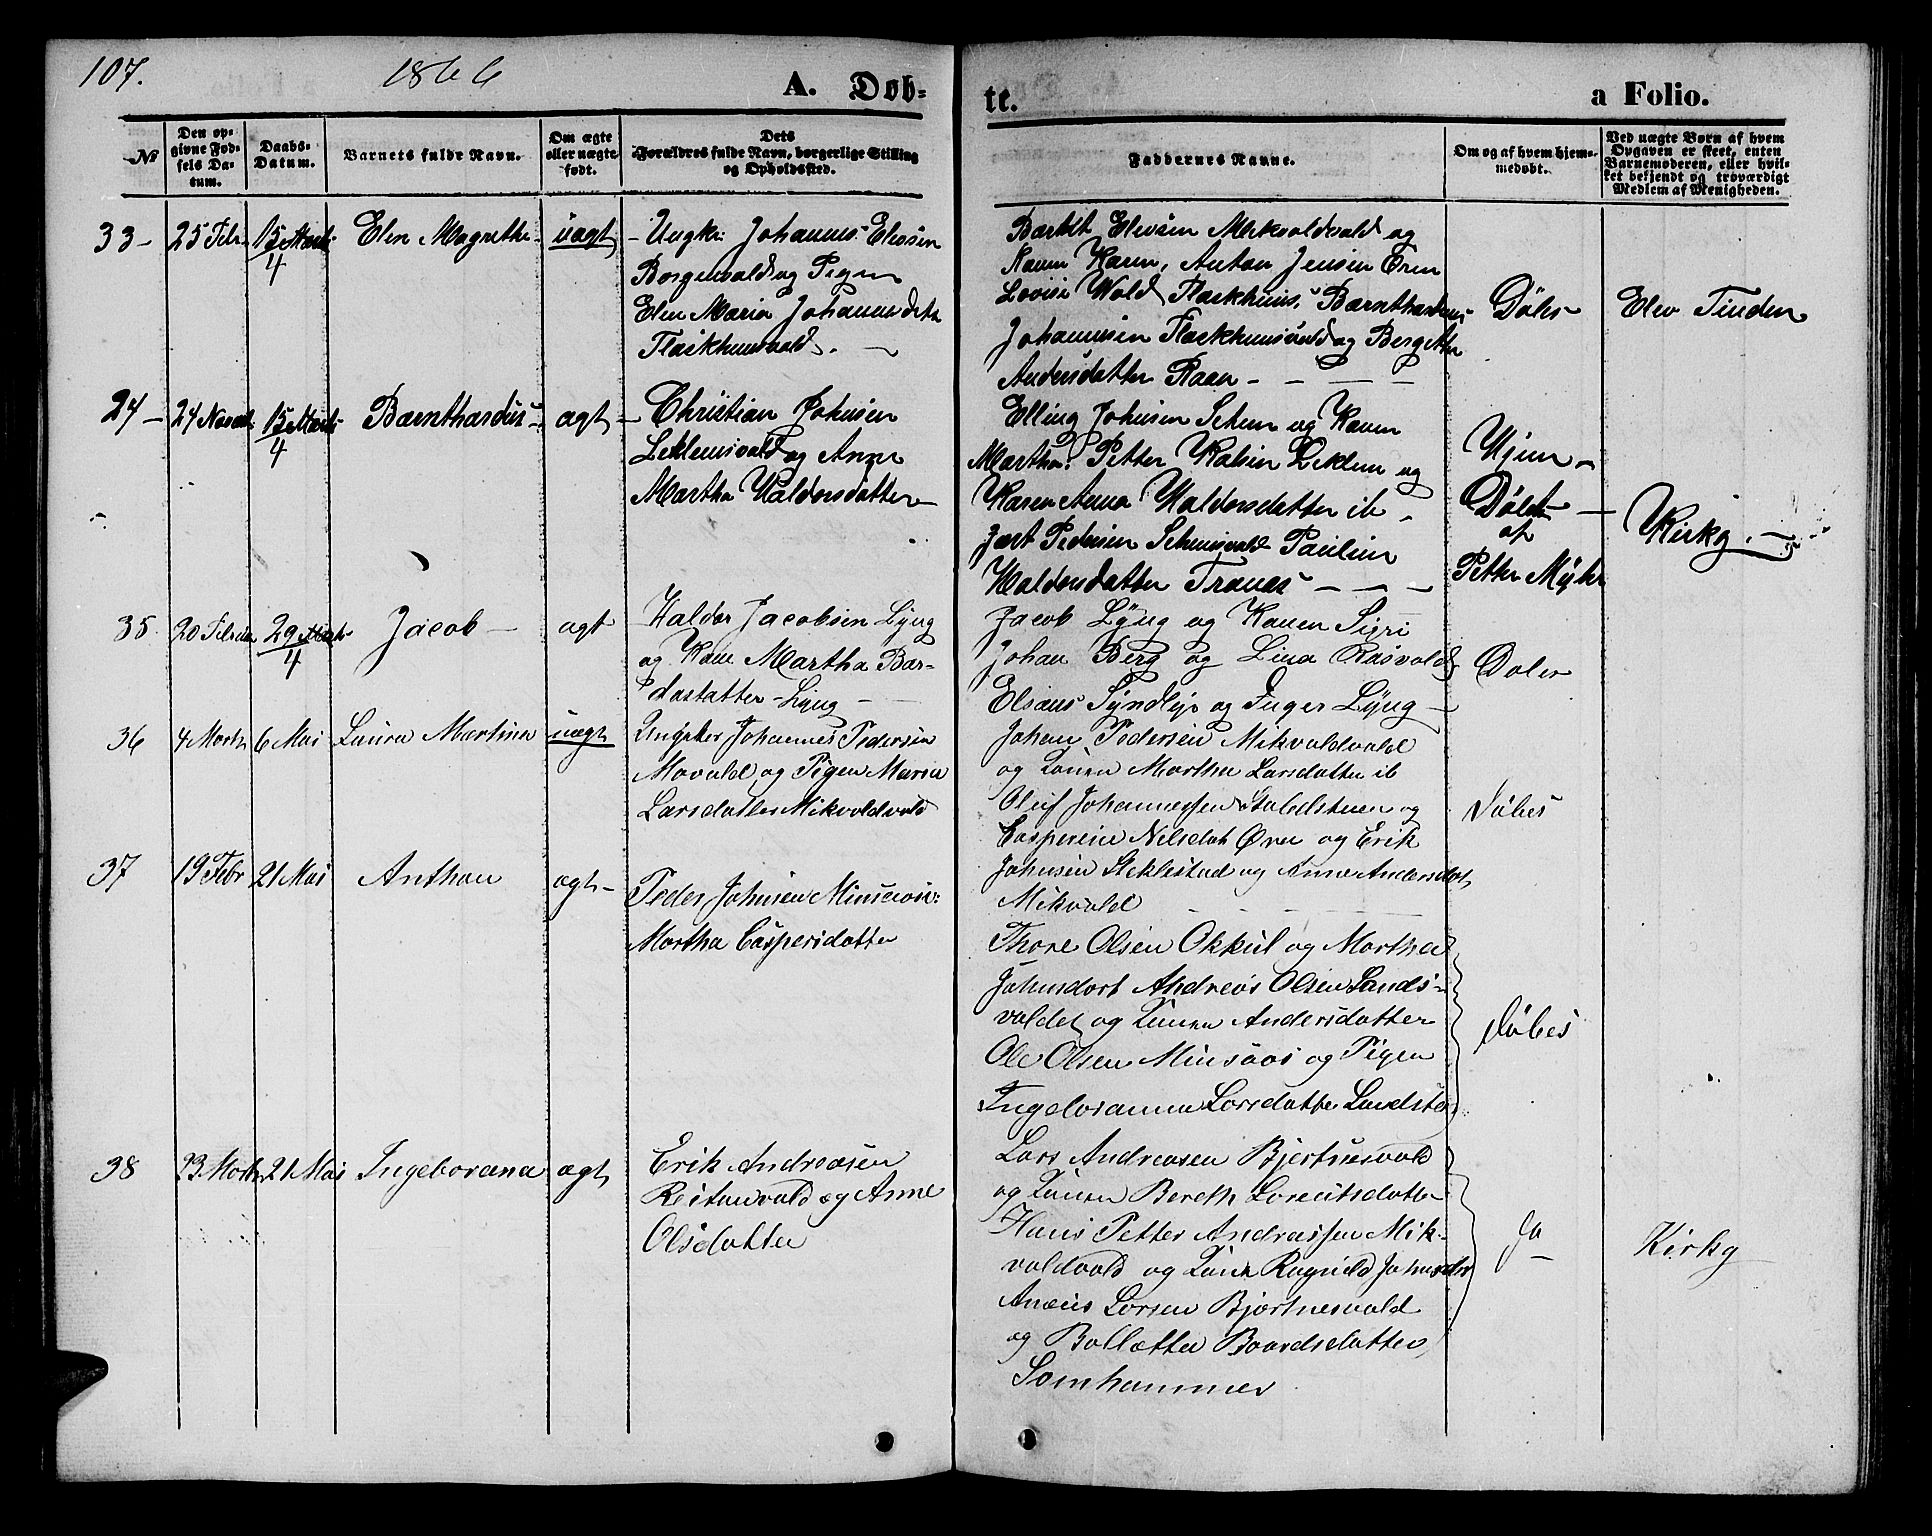 107. 1866 A. Døb- te. a Folio.
№
Den op-
givne Fød-
sels Da-
tum.
Daabs-
Datum.
Barnets fulde Navn.
Om ægte
eller uægte
født.
Dets
Forældres fulde Navn, borgerlige Stilling
og Opholdssted.
Faddernes Navne.
Om og af hvem hjem-
medøbt.
Ved uægte Børn af hvem
Opgaven er skeet, enten
Barnemoderen, eller hvil-
ket bekjendt og troværdigt
Medlem af Menigheden.
33 - 25 Febr 15 Marts/4 Elen Magrethe - uagt
- Ungkr: Johannes Elevsen
Borgenvald og Pigen
Elen Maria Johannesdatr
Flaskhusvald. -
Elevsen Mikvoldvald og
Konen Karen, Anton Jensen Ören
Lovise Wold Flaskhus, Bærnthardus
Johannesen Flaskhusvald og Bergitte
Andersdatter Raen - - - -
Döbs -
Elev Tinden
24 - 24 Novb 15 Marts/4 Barnthardus - agt -
Christian Johnsen
Leklemsvald og Anne
Martha Haldorsdatter -
Elling Johnsen Schen og Konen
Martha. Petter Kolsen Leklem og
Karen Anna Haldorsdatter ib -
Jørt Pedersen Schensvald Pauline
Haldorsdatter Tranes - - -
Hjem -
Döbt -
af
Petter Myhr
Kirkg. -
35 20 Februar 29 Marts/4 Jacob - agt
Haldor Jacobsen Lyng
og Kone Martha Bar-
dosdatter - Lyng -
Jacob Lyng og Konen Sigri
Johan Berg og Lina Rosvold
Elsaus Syndlye og Inger Lyng -
Dobs
36 4 Marts 6 Mai Laura Martina uægt
Ungkar Johannes Pedersen
Movald og Pigen Maria
Larsdatter Mikvoldvald
Johan Pedersen Mikvoldvald
og Konen Martha Larsdatter ib
Oluf Johannessen Stabelstuen og
Caspereine Nilsdat Øren og Erik
Johnsen Stiklestad og Anne Andersdat,
Mikvold
Döbes
37 19 Febr 21 Mai Anthon ægt -
Peder Johnsen Minsaas:
Martha Caspersdatter
Thore Olsen Okkul og Martha
Johnsdat Andreas Olsen Sunds-
valdet og Konen Andersdatter
Ole Olsen Minsaas og Pigen
Ingeboranna Larsdatter
Döbes
38 23 Marts 21 Mai Ingeborana ægt
Erik Andreasen
Reitanvald og Anne
Olsdatter
Lars Andreasen Bjertnesvald
og Konen Bereth Lorentsdatter
Hans Petter Andreassen Mik-
voldvald og Kone Ragnild Johnsdat
Lorsen Bjertnesvald
og Ballætta Baardsdatter
Somhammer
Ja
-
Kirkg